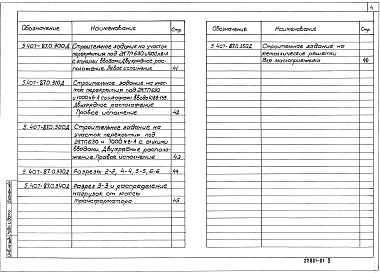 4
Обозначение Наименование Стр.
5.407-87.0.300Д Строительное задание на участок
перекрытия под 2КТП 630 и 1000 кв·А
с глухими вводами. Двухрядное рас-
положение. Левое исполнение 41
5.407-87.0.310Д Строительное задание на учас-
ток перекрытия под 2КТП 630
и 1000 кв·А с
Двухрядное расположение
Правое исполнение 42
5.407-87.0.320Д Строительное задание на
участок перекрытия под
2КТП 630 и 1000 кв·А с глухими
вводами. Двухрядное располо-
жение. Правое исполнение 43
5.407-87.0.330Д Разрезы 2-2, 4-4, 5-5, 6-6 44
5.407-87.0.340Д Разрез 3-3 и распределение
нагрузок от массы
трансформатора 45
Обозначение Наименование Стр.
5.407-87.0.350Д Строительное задание на
металлические решетки
для маслоприемника 46
22831-01 5